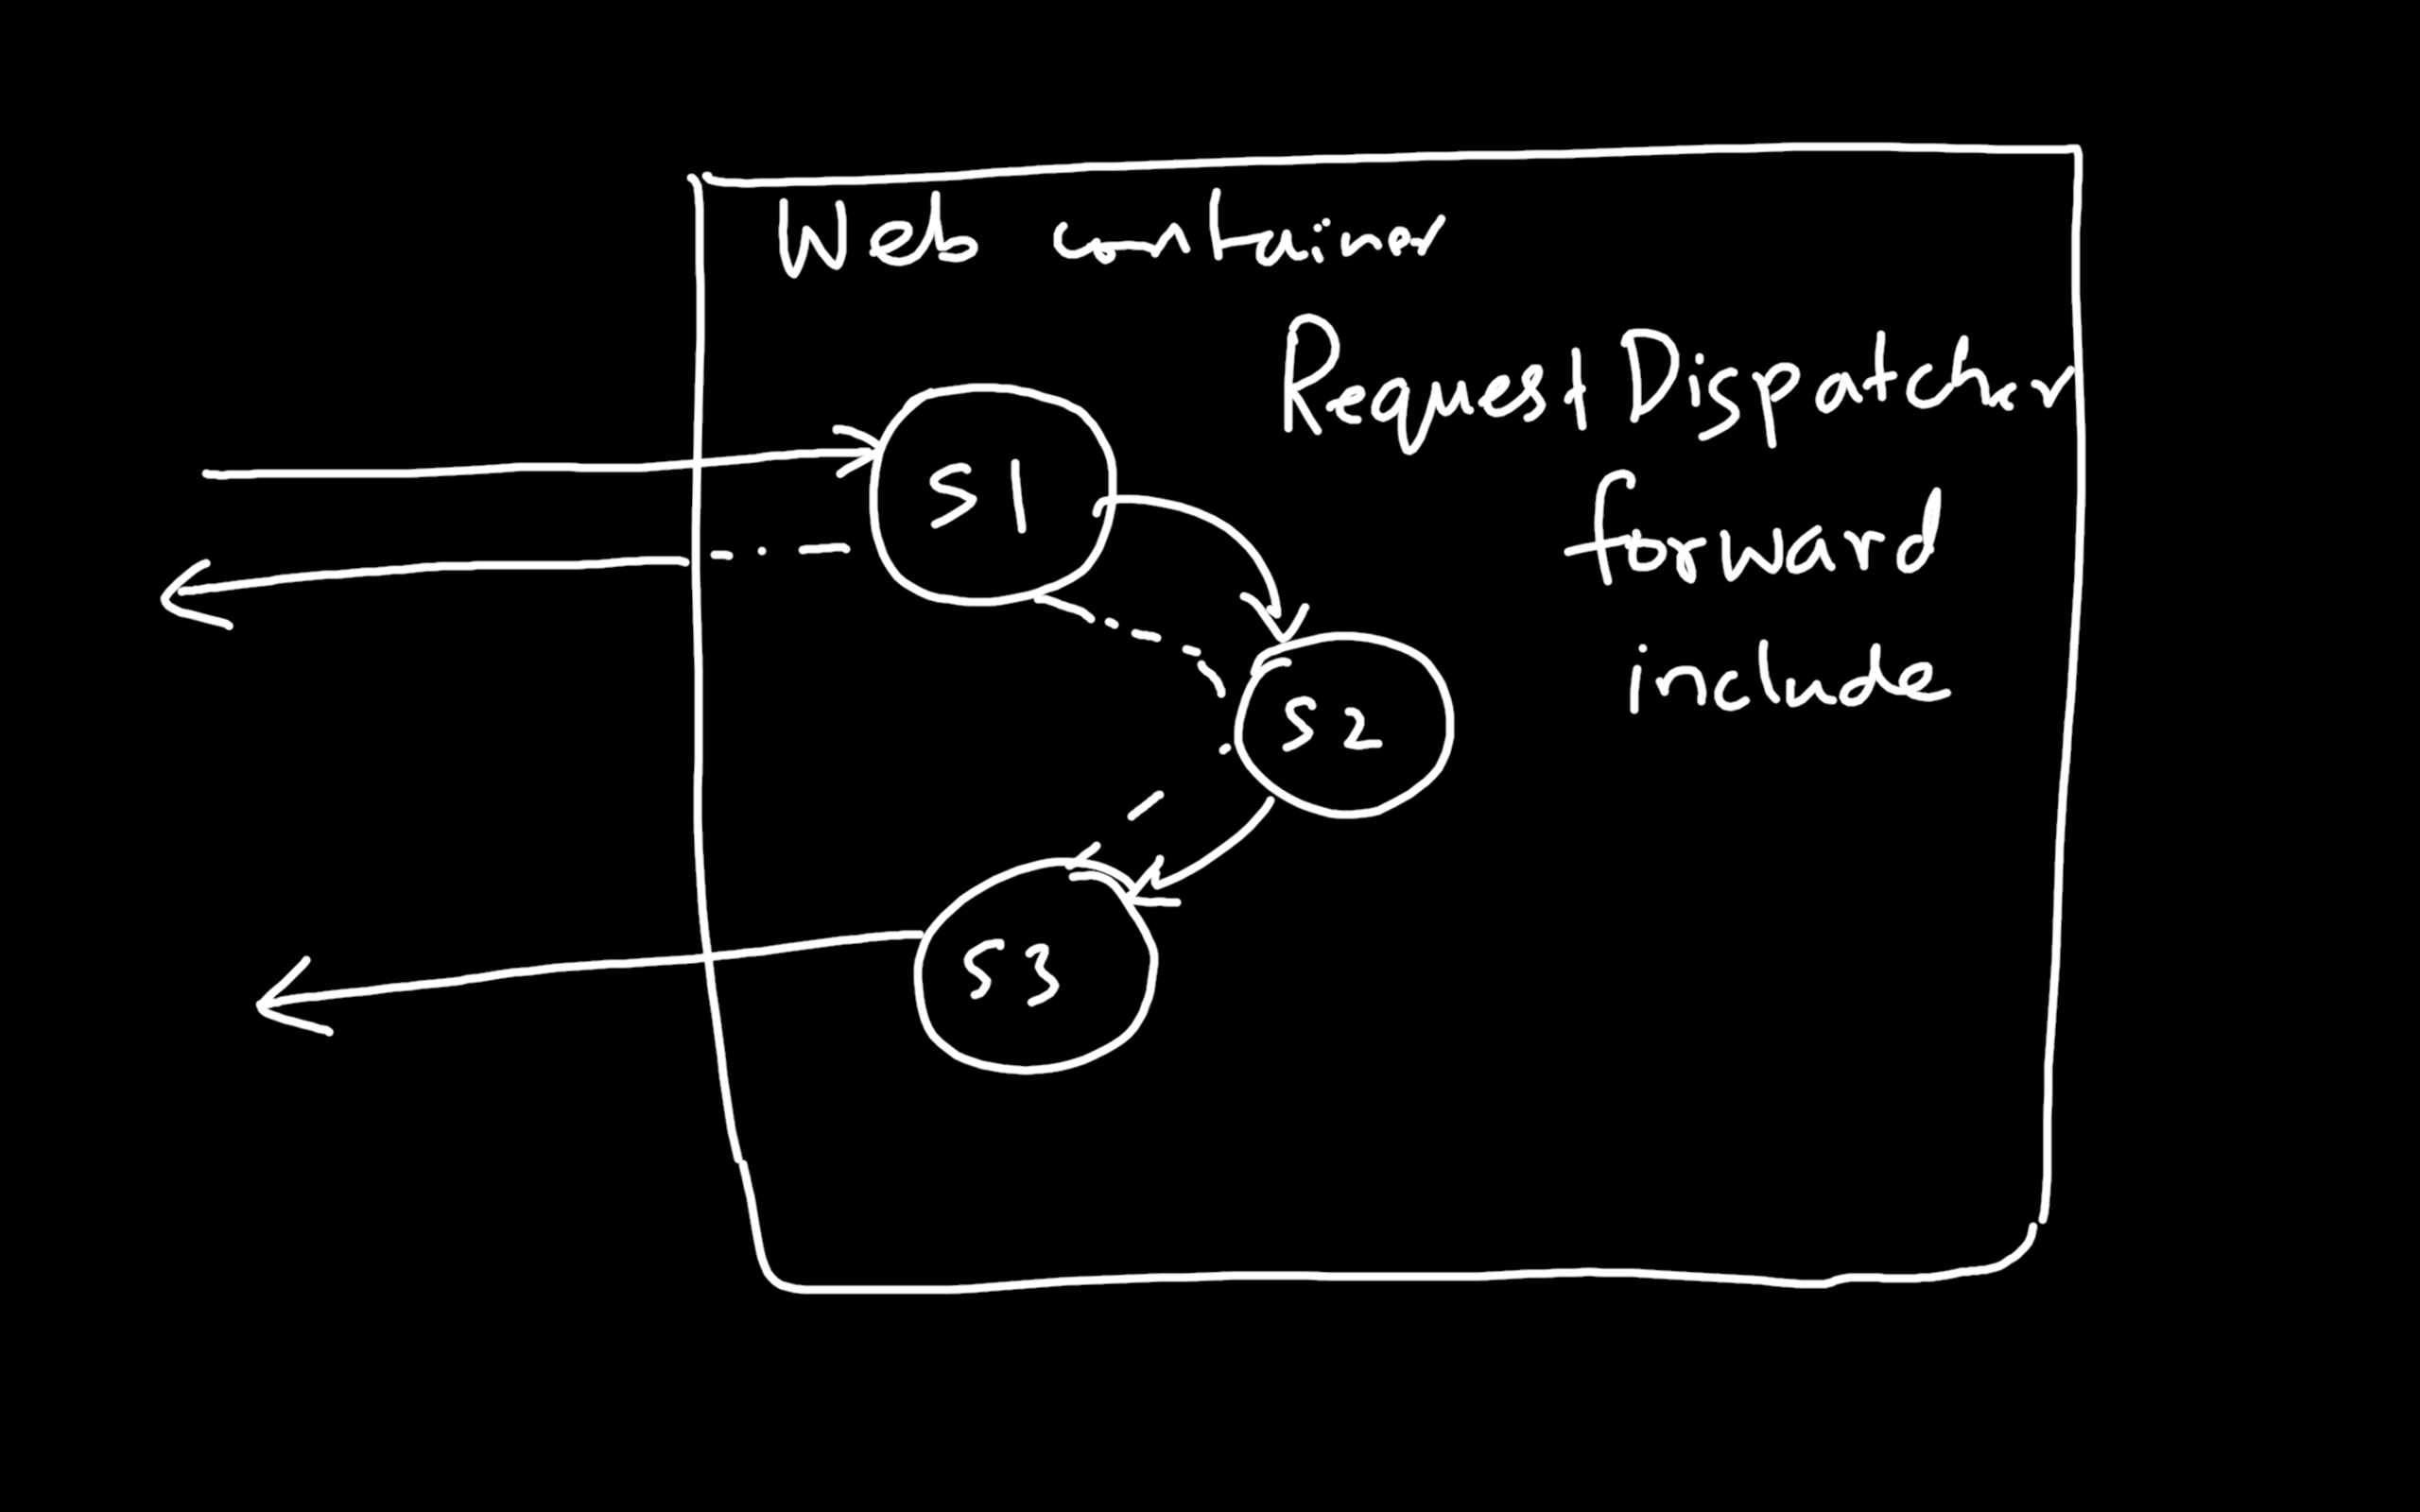 Web container
RequestDispatcher
forward
include
S1
S2
S3